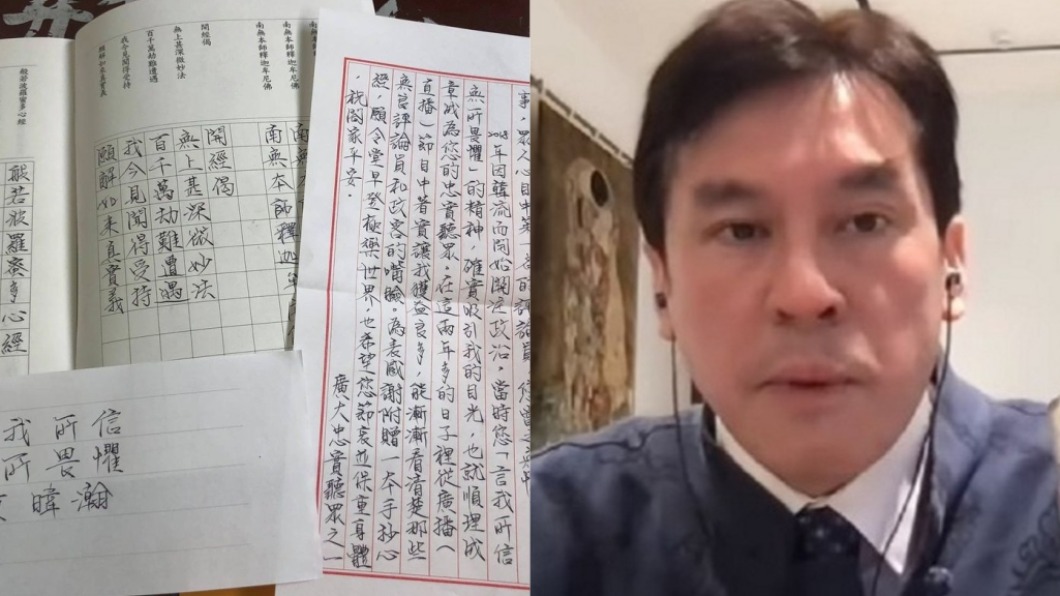 南無本師釋迦牟尼佛
南無本師釋迦牟尼佛
開經偈
無上甚深微妙法
百千萬劫難遭遇
我今見聞得受持
願解如來真實義
南無本師釋迦
開經偈
無上甚深微妙法
百千萬劫難遭遇
我今見聞得受持
願解如來真實義
般若波羅蜜多心經
般若波羅蜜多心經
事,眾人心目中第一名的評論員,
2018年因韓流而開始關注政治,當時您「言我所信
無所畏懼」的精神,確實吸引我的目光,也就順理成
章成為您的忠實聽眾。在這兩年多的日子裡從廣播(
直播)節目中著實讓我獲益良多,能漸漸看清楚那些
無良評論員和政客的嘴臉。為表感謝附贈一本手抄心
經,願令堂早登極樂世界,也希望您節哀並保重身體
,祝闔家平安。
廣大忠實聽眾之一
我所信
所畏懼
暐瀚